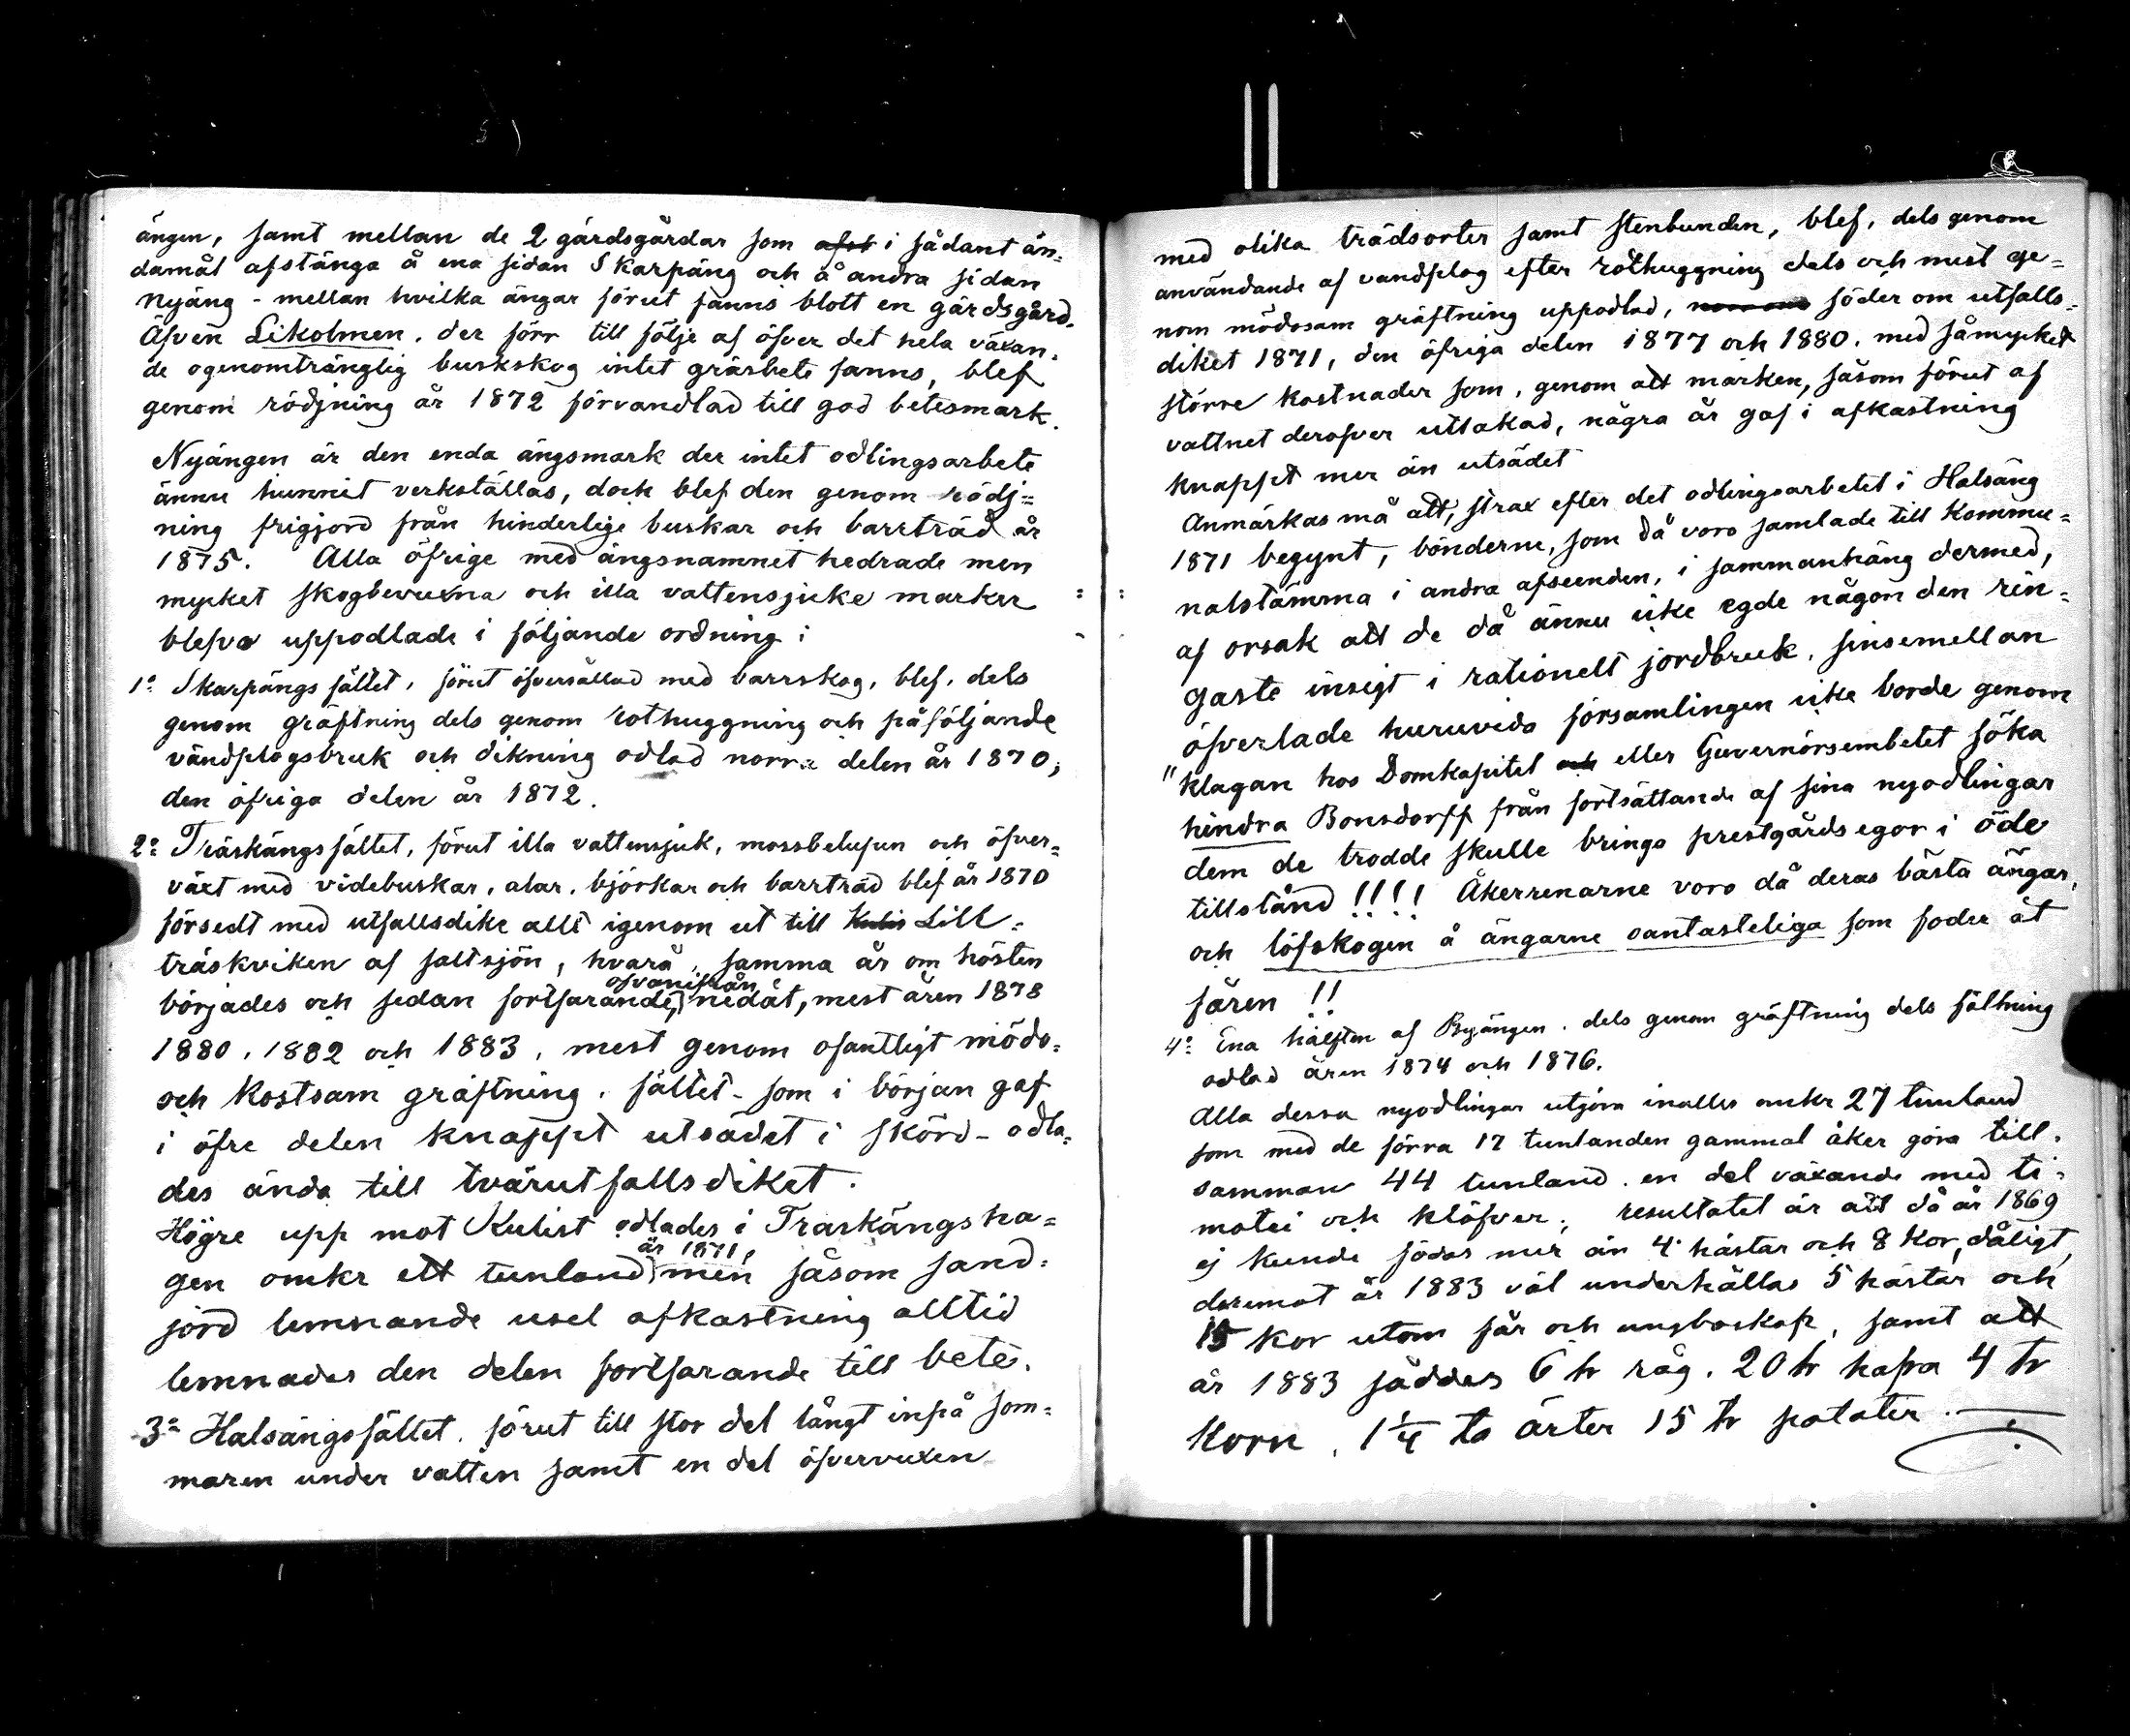 ängen, samt mellan de 2 gärdsgårdar som afst i sådant än=
damål afstänga å ena sidan Skarpäng och å andra sidan
Nyäng - mellan hvilka ängar förut fanns blott en gärdsgård.
Äfven Likolmen, der förr till följe af öfver det hela växan=
de ogenomtränglig buskskog intet gräsbete fanns, blef
genom rödjning år 1872 förvandlad till god betesmark.
Nyängen är den enda ängsmark der intet odlingsarbete
ännu hunnit verkställas, dock blef den genom rödj=
ning frigjord från hinderlige buskar och barrträd år
1875. Alla öfrige med ängsnamnet hedrade men
mycket skogbevuxna och illa vattensjuke marker
blefvo uppodlade i följande ordning:
1º Skarpängsfältet, förut öfversållad med barrskog, blef, dels
genom gräftning dels genom rothuggning och påföljande
vändplogsbruk och dikning odlad norra delen år 1870;
den öfriga delen år 1872.
2º Träskängsfältet, förut illa vattensjuk, mossbelupen och öfver=
växt med videbuskar, alar, björkar och barrträd blef år 1870
försedt med utfallsdike allt igenom ut till Kulis Lill=
träskviken af saltsjön, hvarå, samma år om hösten
ofvanifrån
börjades och sedan fortfarande, nedåt, mest åren 1878
1880, 1882 och 1883, mest genom ofantligt mödo=
och kostsam gräftning, fältet - som i början gaf
i öfre delen knappt utsädet i skörd - odla=
des ända till tvärutfallsdiket.
Högre upp mot Kulist odlades i Träskängsha=
år 1871,
gen omkr ett tunland men såsom sand=
jord lemnande usel afkastning alltid
lemnades den delen fortfarande till bete.
3º Halsängsfältet, förut till stor del långt inpå som=
maren under vatten samt en del öfvervuxen
med olika trädsorter samt stenbunden, blef, dels genom
användande af vändplog efter rothuggning dels och mest ge=
nom mödosam gräftning uppodlad, söder om utfalls=
diket 1871, den öfriga delen 1877 och 1880, med såmycket
större kostnader som, genom att marken, såsom förut af
vattnet derofver utlakad, några år gaf i afkastning
knappt mer än utsädet
Anmärkas må att, strax efter det odlingsarbetet i Halsäng
1871 begynt, bönderne, som då voro samlade till Kommu=
nalstämma i andra afseenden, i sammanhang dermed,
af orsak att de då ännu icke egde någon den rin=
gaste insigt i rationelt jordbruk, sinsemellan
öfverlade huruvida församlingen icke borde genom
"klagan hos Domkapitel och eller Guvernörsembetet söka
hindra Bonsdorff från fortsättande af sina nyodlingar
dem de trodde skulle bringa prestgårds egor i öde
tillstånd !!!! Åkerrenarne voro då deras bästa ängar,
och löfskogen å ängarne oantasteliga som foder åt
fåren !!
4º Ena hälften af Byängen, dels genom gräftning dels fällning
odlad åren 1874 och 1876.
Alla dessa nyodlingar utgöra inalles omkr 27 tunland
som med de förra 17 tunlanden gammal åker göra till=
samman 44 tunland, en del växande med ti=
motei och klöfver; resultatet är att då år 1869
ej kunde födas mer än 4 hästar och 8 kor, dåligt,
deremot år 1883 väl underhållas 5 hästar och
15 kor utom får och ungboskap, samt att
år 1883 såddes 6 tr råg, 20 tr hafra 4 tr
Korn, 1¼ ta ärter 15 tr potater.